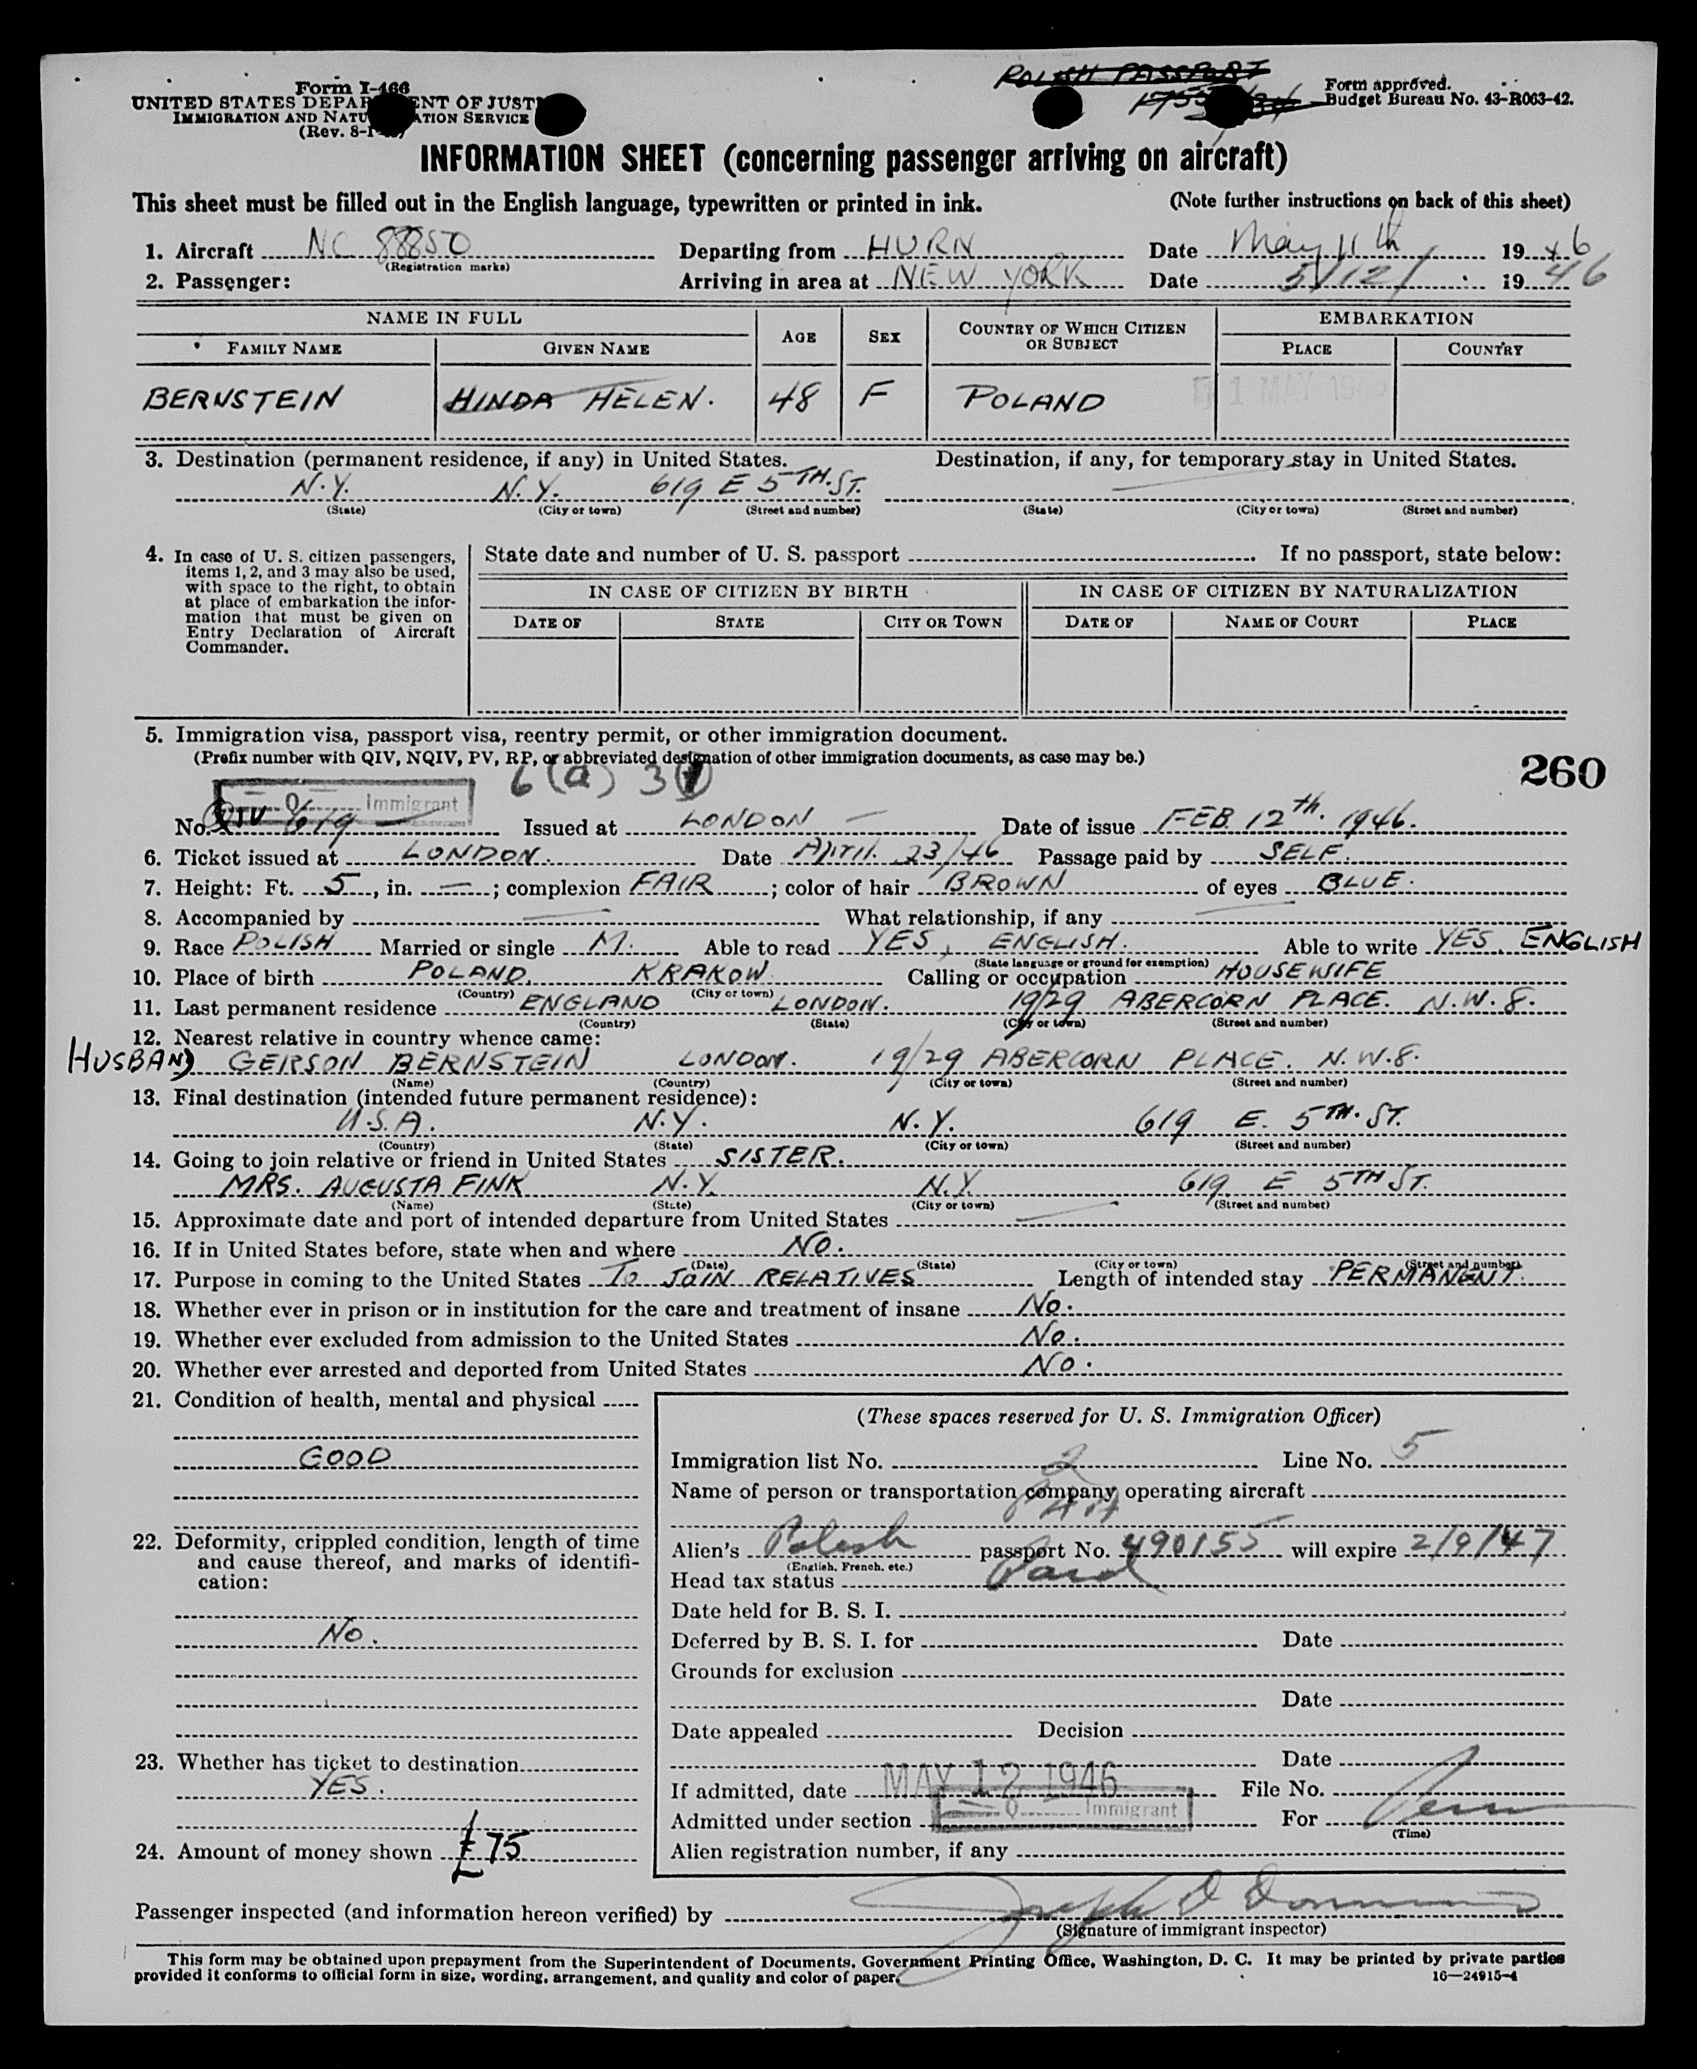 Form I-466
UNITED STATES DEPARTMENT OF JUSTICE
IMMIGRATION AND NATURALIZATION SERVICE
(Rev. 8-1-
POLISH PASSPORT
Form approved.
Budget Bureau No. 43-R063-42.
INFORMATION SHEET (concerning passenger arriving on aircraft)
This sheet must be filled out in the English language, typewritten or printed in ink. (Note further instructions on back of this sheet)
1. Aircraft NC 88850 Departing from HURN Date May 11th 1946
(Registration marks)
2. Passenger: Arriving in area at NEW YORK Date 5/12/ 1946
NAME IN FULL AGE SEX COUNTRY OF WHICH CITIZEN OR SUBJECT EMBARKATION
FAMILY NAME GIVEN NAME PLACE COUNTRY
BERNSTEIN HINDA HELEN. 48 F POLAND
3. Destination (permanent residence, if any) in United States. Destination, if any, for temporary stay in United States.
N.Y. N.Y. 619 E 5TH.ST. —
(State) (City or town) (Street and number) (State) (City or town) (Street and number)
4. In case of U. S. citizen passengers, items 1, 2, and 3 may also be used, with space to the right, to obtain at place of embarkation the information that must be given on Entry Declaration of Aircraft Commander.
State date and number of U. S. passport If no passport, state below:
IN CASE OF CITIZEN BY BIRTH IN CASE OF CITIZEN BY NATURALIZATION
DATE OF STATE CITY OR TOWN DATE OF NAME OF COURT PLACE
5. Immigration visa, passport visa, reentry permit, or other immigration document.
(Prefix number with QIV, NQIV, PV, RP, or abbreviated designation of other immigration documents, as case may be.)
6(a) 3
260
Immigrant
No. QIV 619 — Issued at LONDON — Date of issue FEB 12th. 1946.
6. Ticket issued at LONDON. Date April. 23/46 Passage paid by SELF.
7. Height: Ft. 5, in. —; complexion FAIR; color of hair BROWN of eyes BLUE.
8. Accompanied by — What relationship, if any —
9. Race POLISH Married or single M. Able to read YES, ENGLISH. Able to write YES. ENGLISH
(State language or ground for exemption)
10. Place of birth POLAND, KRAKOW Calling or occupation HOUSEWIFE
(Country) (City or town)
11. Last permanent residence ENGLAND LONDON. 19/29 ABERCORN PLACE. N.W.8.
(Country) (State) (City or town) (Street and number)
12. Nearest relative in country whence came:
HUSBAND GERSON BERNSTEIN LONDON. 19/29 ABERCORN PLACE. N.W.8.
(Name) (Country) (City or town) (Street and number)
13. Final destination (intended future permanent residence):
U.S.A. N.Y. N.Y. 619 E. 5TH. ST.
(Country) (State) (City or town) (Street and number)
14. Going to join relative or friend in United States SISTER.
MRS. AUGUSTA FINK N.Y. N.Y. 619 E 5TH ST.
(Name) (State) (City or town) (Street and number)
15. Approximate date and port of intended departure from United States —
16. If in United States before, state when and where NO.
(Date) (State) (City or town) (Street and number)
17. Purpose in coming to the United States To JOIN RELATIVES Length of intended stay PERMANENT.
18. Whether ever in prison or in institution for the care and treatment of insane No.
19. Whether ever excluded from admission to the United States No.
20. Whether ever arrested and deported from United States No.
21. Condition of health, mental and physical
GOOD
22. Deformity, crippled condition, length of time and cause thereof, and marks of identification:
No.
23. Whether has ticket to destination
YES.
24. Amount of money shown £75
(These spaces reserved for U. S. Immigration Officer)
Immigration list No. 2 Line No. 5
Name of person or transportation company operating aircraft
PAA
Alien's Polish passport No. 490155 will expire 2/9/47
(English, French, etc.)
Head tax status Paid
Date held for B. S. I.
Deferred by B. S. I. for Date
Grounds for exclusion
Date
Date appealed Decision
Date
If admitted, date MAY 12 1946 File No.
Admitted under section Immigrant For Perm
(Time)
Alien registration number, if any
Passenger inspected (and information hereon verified) by
(Signature of immigrant inspector)
This form may be obtained upon prepayment from the Superintendent of Documents, Government Printing Office, Washington, D. C. It may be printed by private parties
provided it conforms to official form in size, wording, arrangement, and quality and color of paper.
16—24915-4